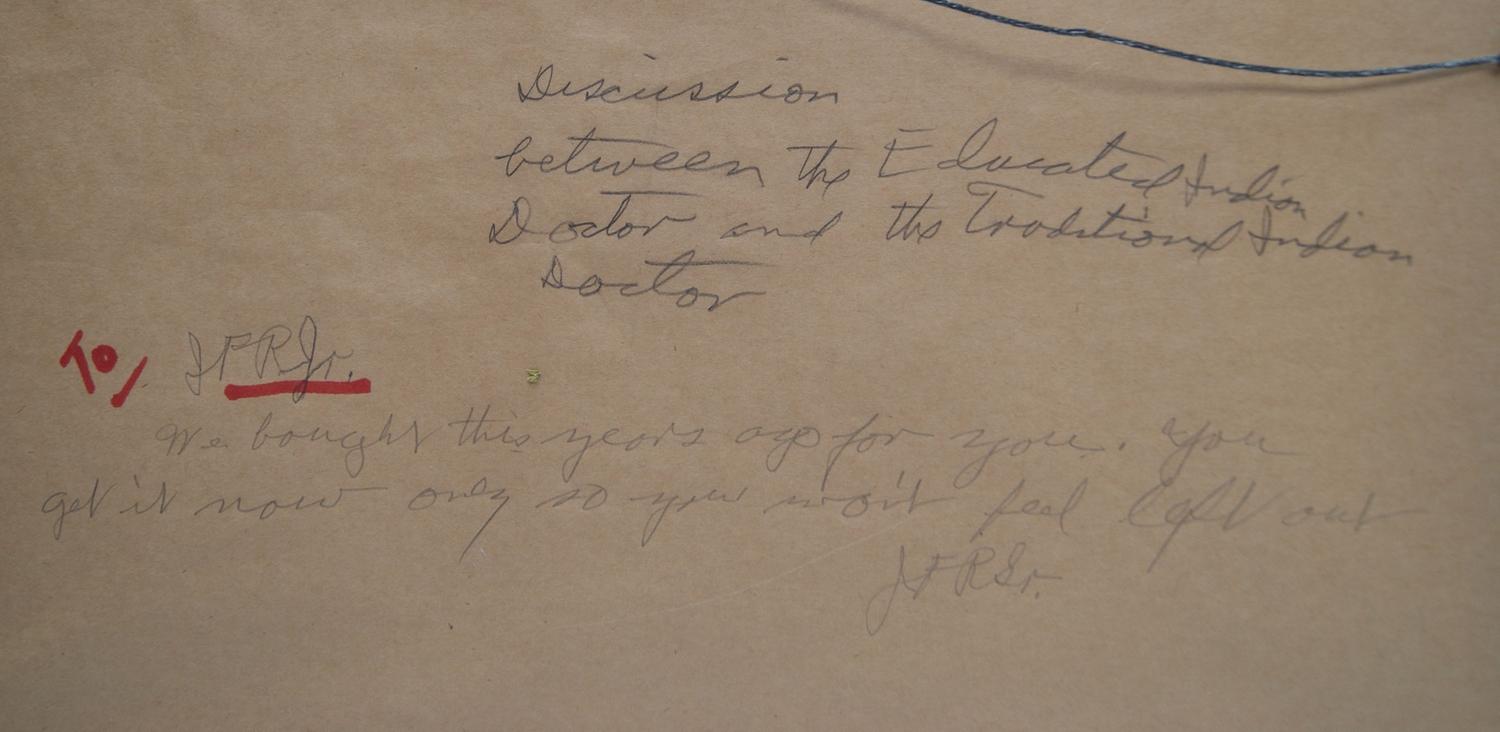 Discussion
between the Educated Indian
Doctor and the Traditional Indian
Doctor
To/ JFRJr.
We bought this years ago for you. You
get it now only so you won't feel left out
JFRSr.